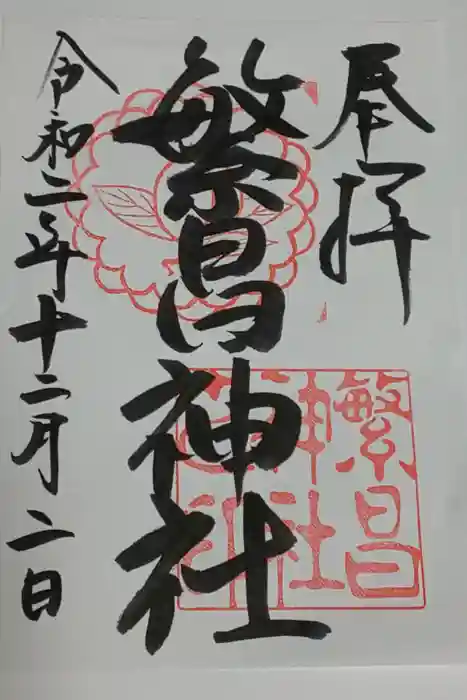 奉拝
繁昌神社
令和二年十二月二日
繁昌
神社